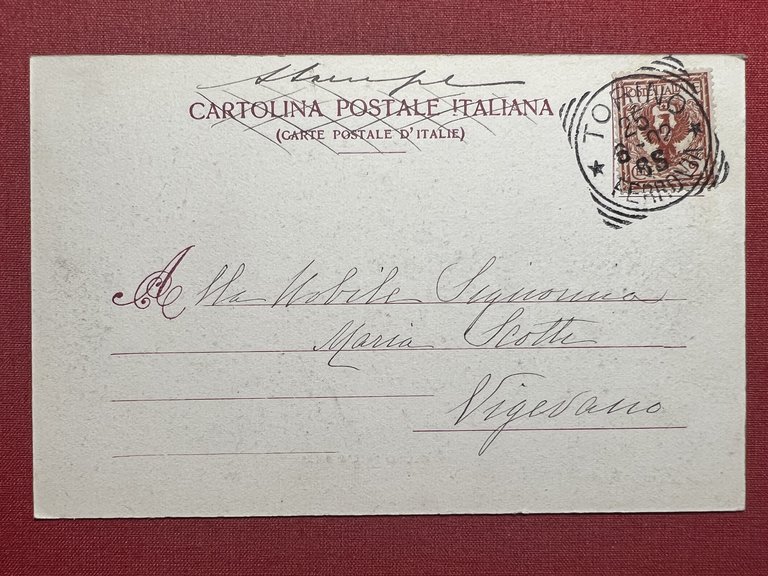 Stampe
CARTOLINA POSTALE ITALIANA
(CARTE POSTALE D'ITALIE)
TORINO
25 10
02
8 S
FERROVIA
Alla Nobile Signorina
Maria Scotti
Vigevano